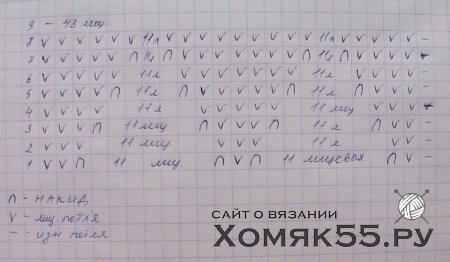 9 – 43 лиц.
8 v v v v v v 11л v v v v v v v v v 11л v v v v v –
7 v v v v v ∩ 11л ∩ v v v v v v v ∩ 11л ∩ v v v v –
6 v v v v v 11л v v v v v v v 11л v v v v –
5 v v v v ∩ 11л ∩ v v v v v ∩ 11л ∩ v v v –
4 v v v v 11л v v v v v 11 лиц v v v –
3 v v v ∩ 11 лиц ∩ v v v ∩ 11л ∩ v v –
2 v v v 11 лиц v v v 11л v v –
1 v v ∩ 11 лиц. ∩ v ∩ 11 лицевых ∩ v –
∩ – НАКИД
v – лиц. петля
– – изн петля
САЙТ О ВЯЗАНИИ
ХОМЯК55.РУ